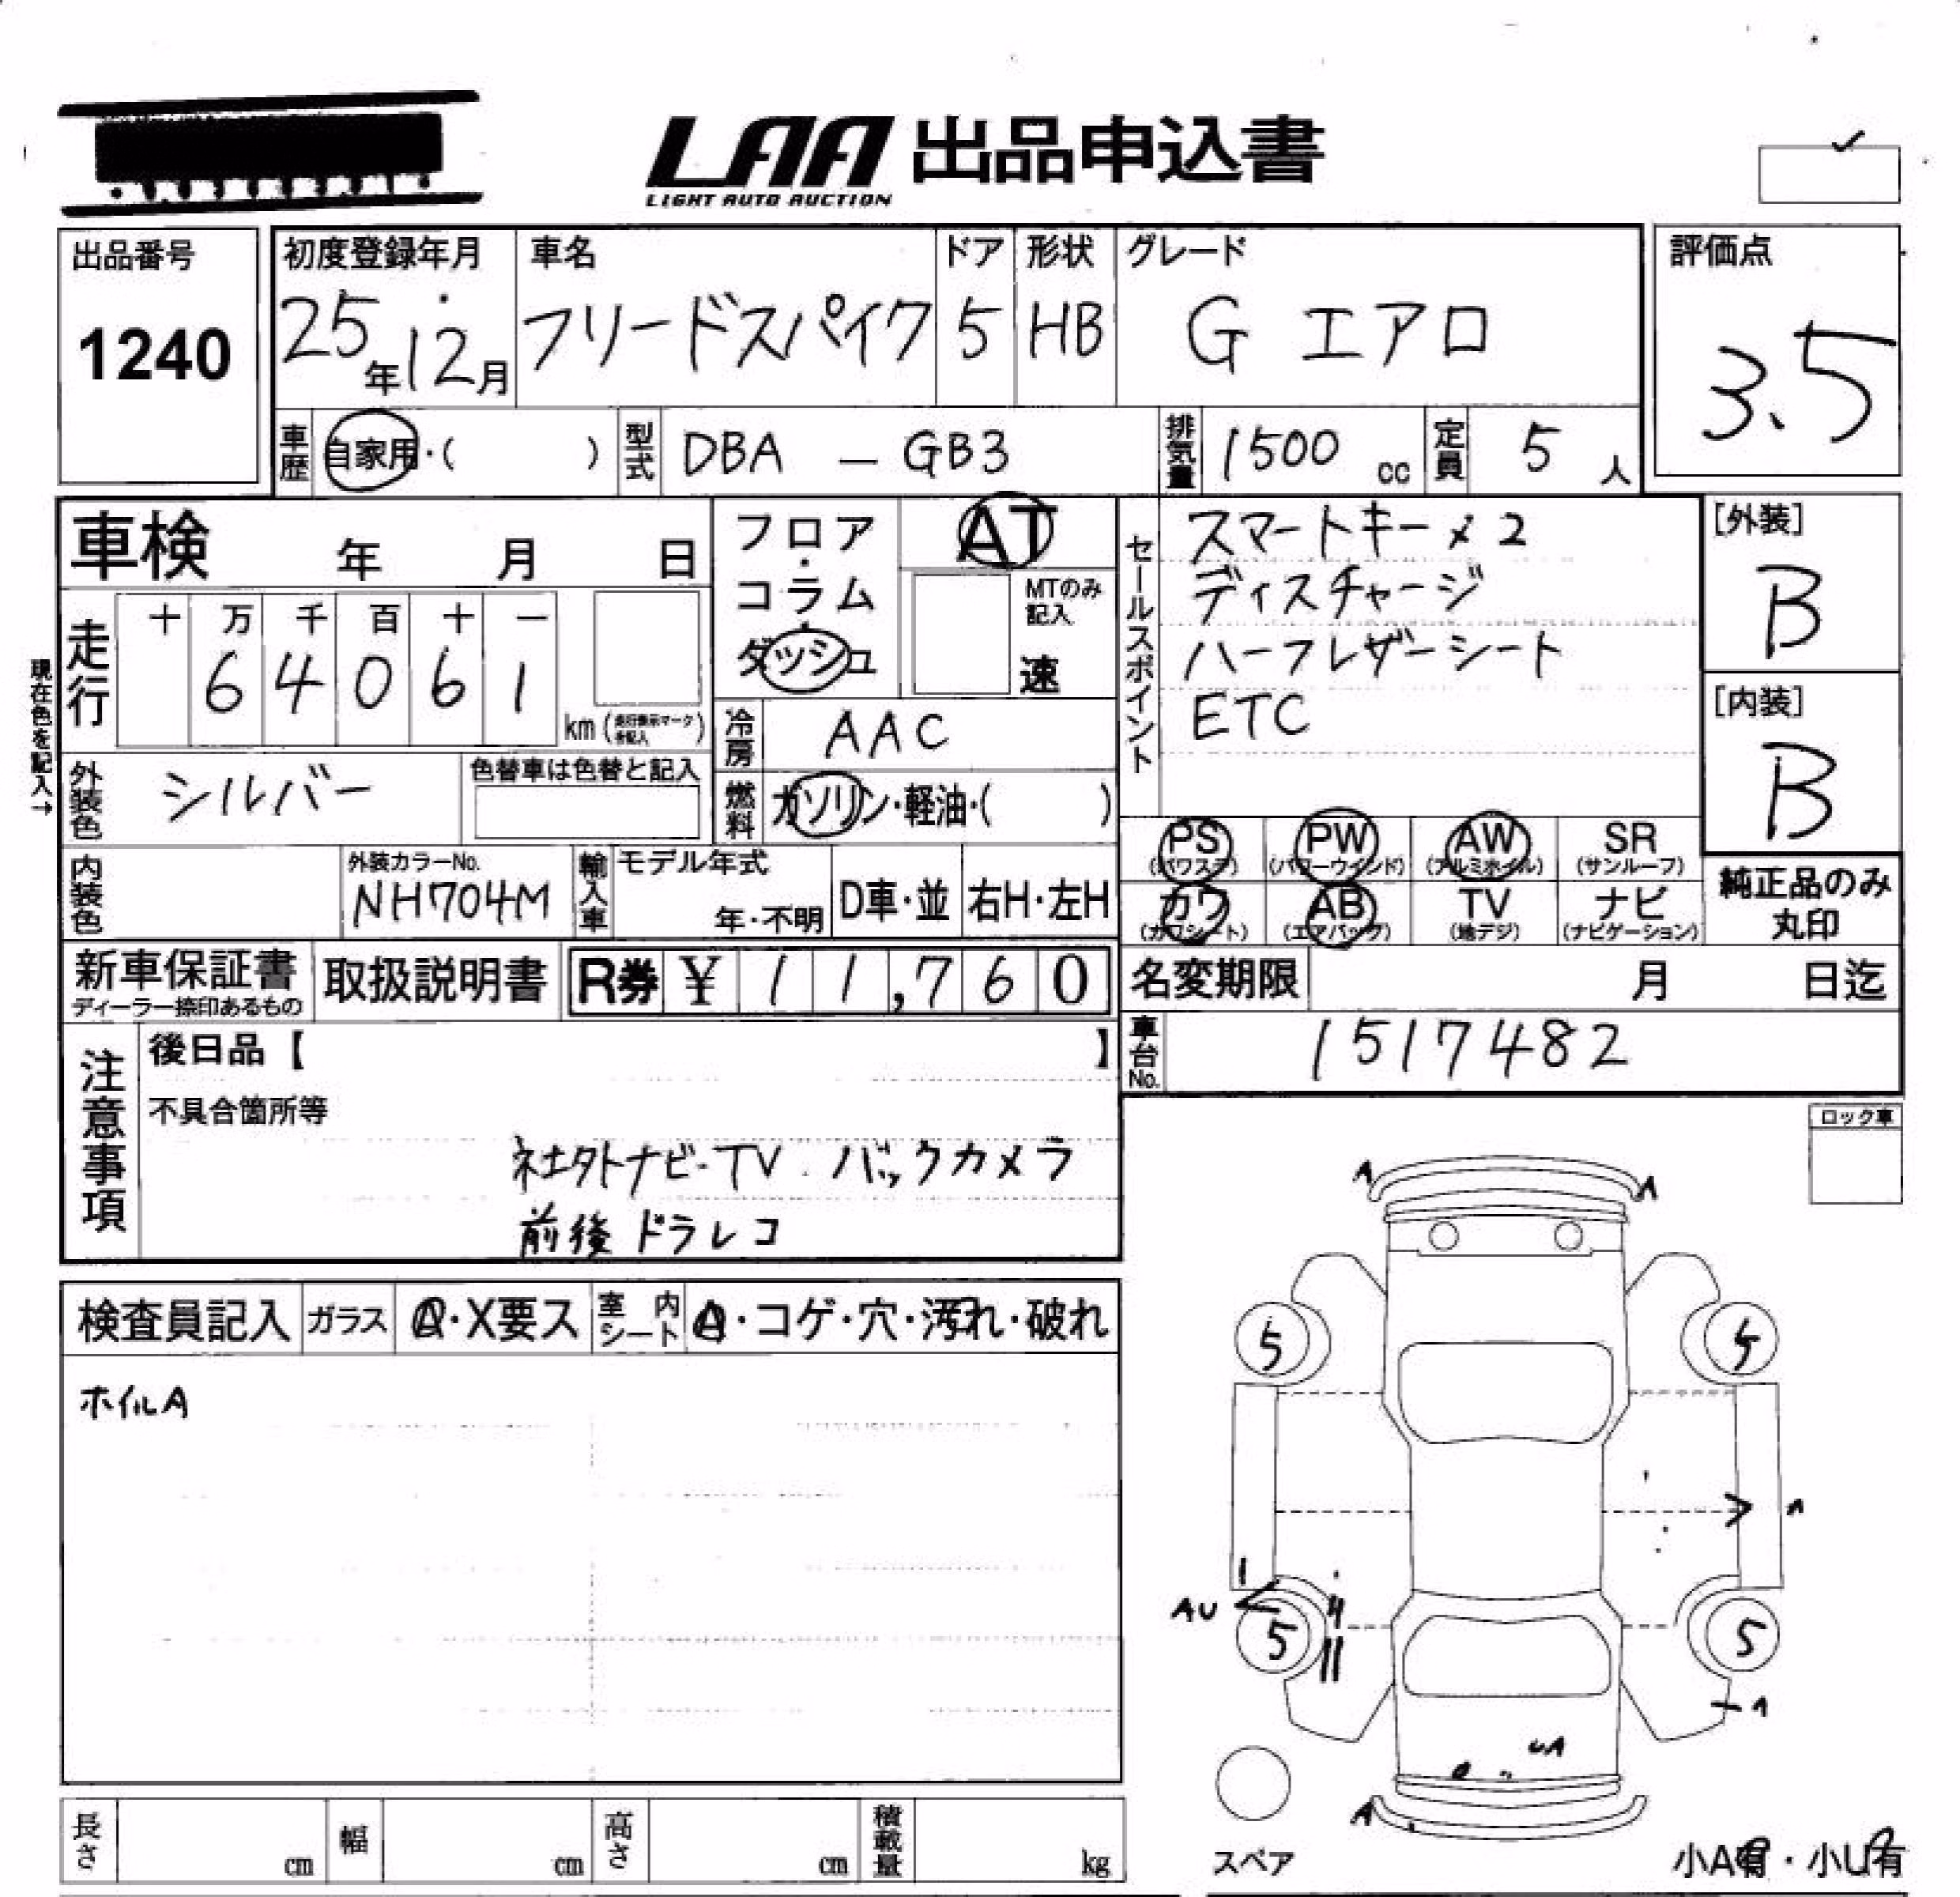 LAA 出品申込書
LIGHT AUTO AUCTION
出品番号
1240
初度登録年月
25年12月
車名
フリードスパイク
ドア
5
形状
HB
グレード
G エアロ
評価点
3.5
車歴 自家用・( )
型式 DBA - GB3
排気量 1500 cc
定員 5 人
車検 年 月 日
走行
十 万 千 百 十 一
6 4 0 6 1
km
現在色を記入→
フロア・コラム・ダッシュ
AT
MTのみ記入
速
冷房 AAC
燃料 ガソリン・軽油・( )
セールスポイント
スマートキー×2
ディスチャージ
ハーフレザーシート
ETC
[外装]
B
[内装]
B
外装色 シルバー
色替車は色替と記入
内装色
外装カラーNo.
NH704M
輸入車
モデル年式
年・不明
D車・並
右H・左H
PS
(パワステ)
PW
(パワーウインド)
AW
(アルミホイル)
SR
(サンルーフ)
カワ
(カワシート)
AB
(エアバック)
TV
(地デジ)
ナビ
(ナビゲーション)
純正品のみ
丸印
新車保証書
ディーラー捺印あるもの
取扱説明書
R券 ¥ 11,760
名変期限 月 日迄
車台No. 1517482
注意事項
後日品【 】
不具合箇所等
社外ナビ-TV バックカメラ
前後ドラレコ
ロック車
検査員記入
ガラス
A・X要ス
室内シート
A・コゲ・穴・汚れ・破れ
ホイルA
A A
5 5
A
AU
5 5
UA
A
スペア
小A有・小U有
長さ cm
幅 cm
高さ cm
積載量 kg